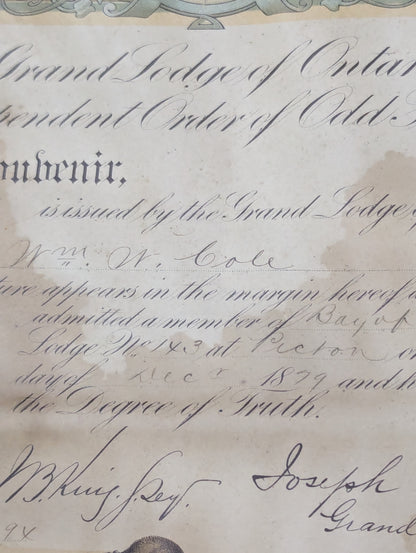 Grand Lodge of Ontar
pendent Order of Odd F
ouvenir,
is issued by the Grand Lodge
Wm. W. Cole
ture appears in the margin hereof
admitted a member of Bay of
Lodge No. 143 at Picton
day of Decr. 1879 and
the Degree of Truth.
J. B. King. G. Secy.
Joseph
Grand
94